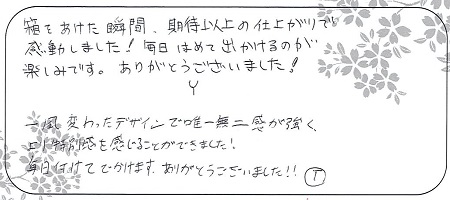 箱をあけた瞬間、期待以上の仕上がりで
感動しました！毎日はめて出かけるのが
楽しみです。ありがとうございました！
Y
一風変わったデザインで唯一無二感が強く、
より特別感を感じることができました！
毎日付けてでかけます。ありがとうございました!! T